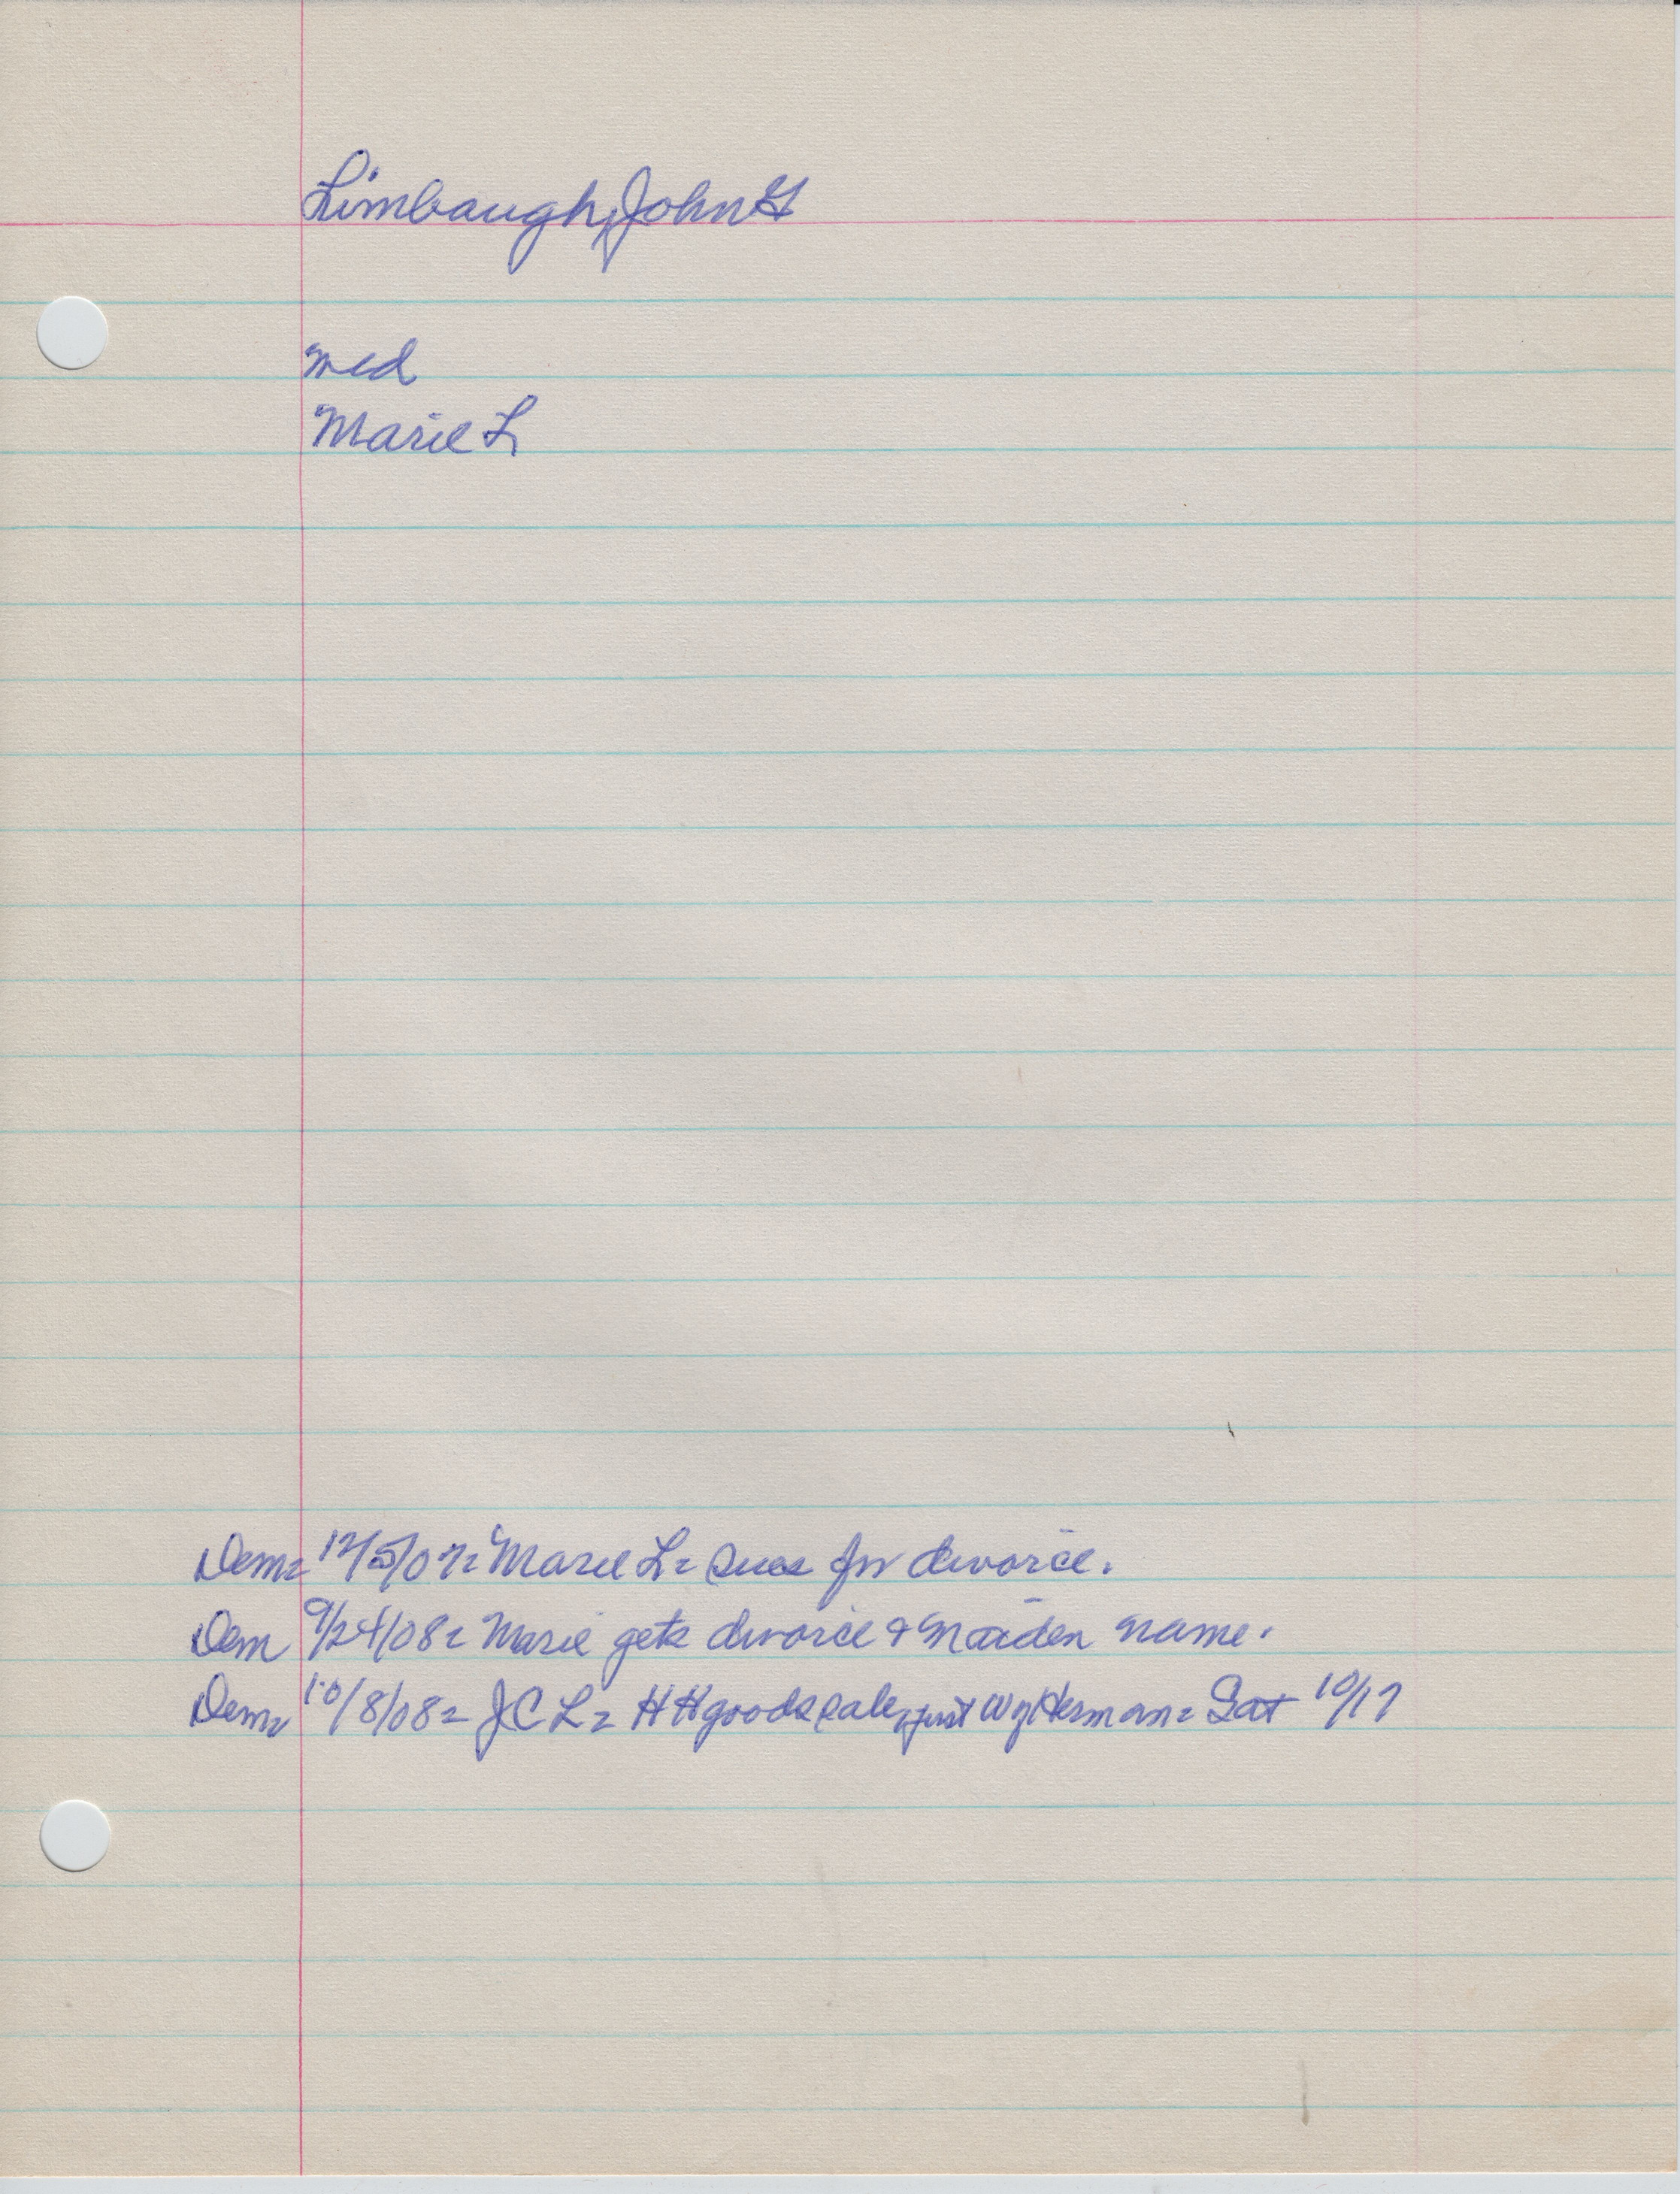 Limbaugh, John G
Med
Marie L
Dem= 12/5/07= Marie L= Sues for divorce.
Dem 9/24/08= Marie gets divorce & maiden name.
Dem= 10/8/08= J C L= H H goods sale, just W of Herman= Sat 10/17